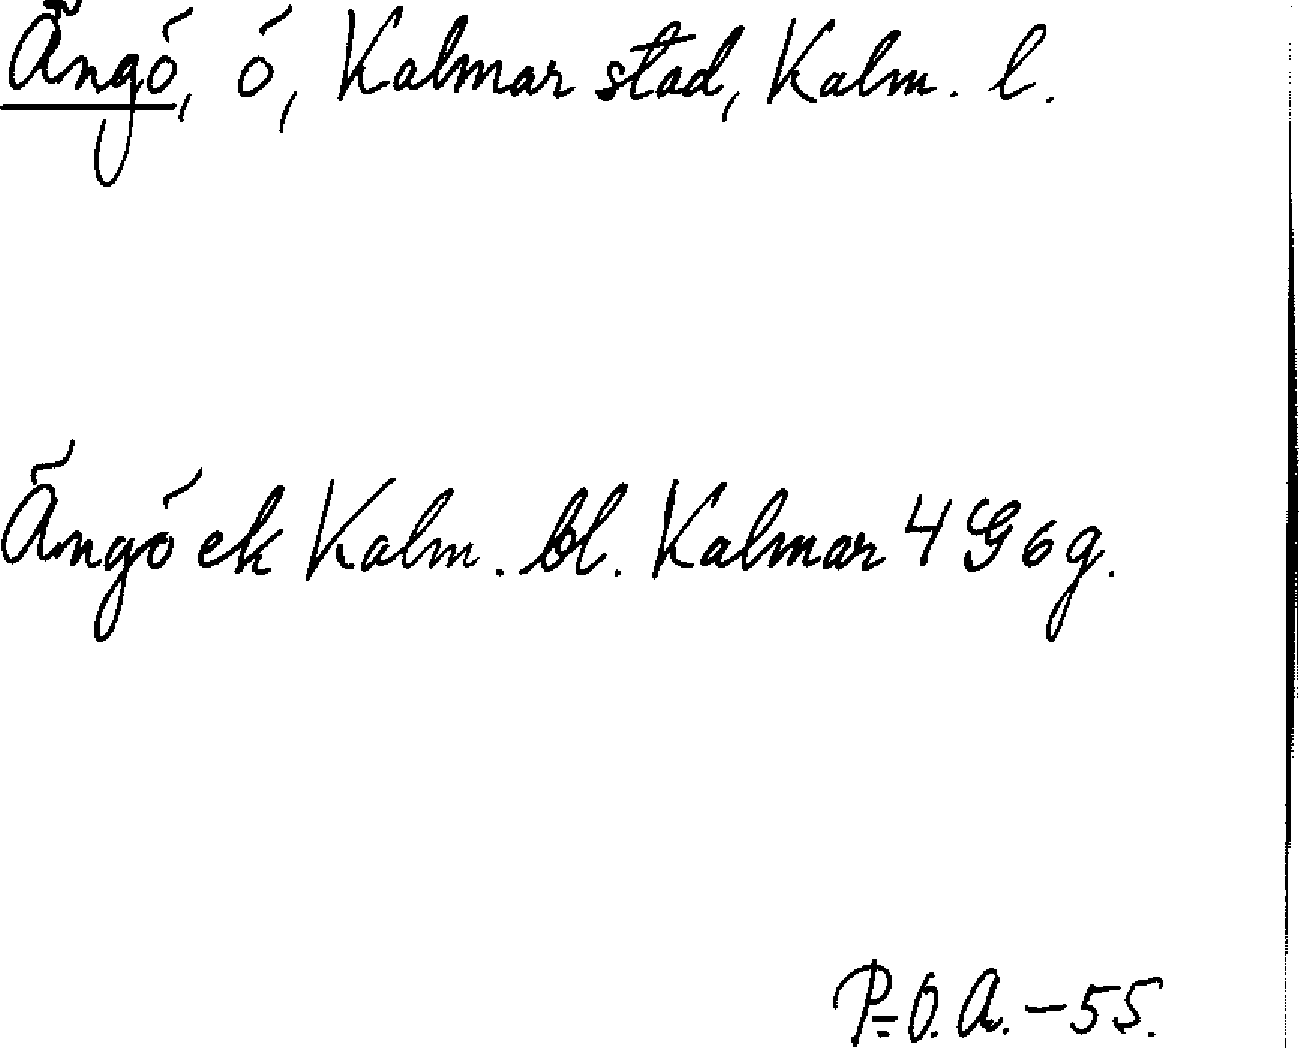 Ängö, ö, Kalmar stad, Kalm. l.
Ängö ek Kalm. bl. Kalmar 4 G 6 g.
P-O. A. - 55.